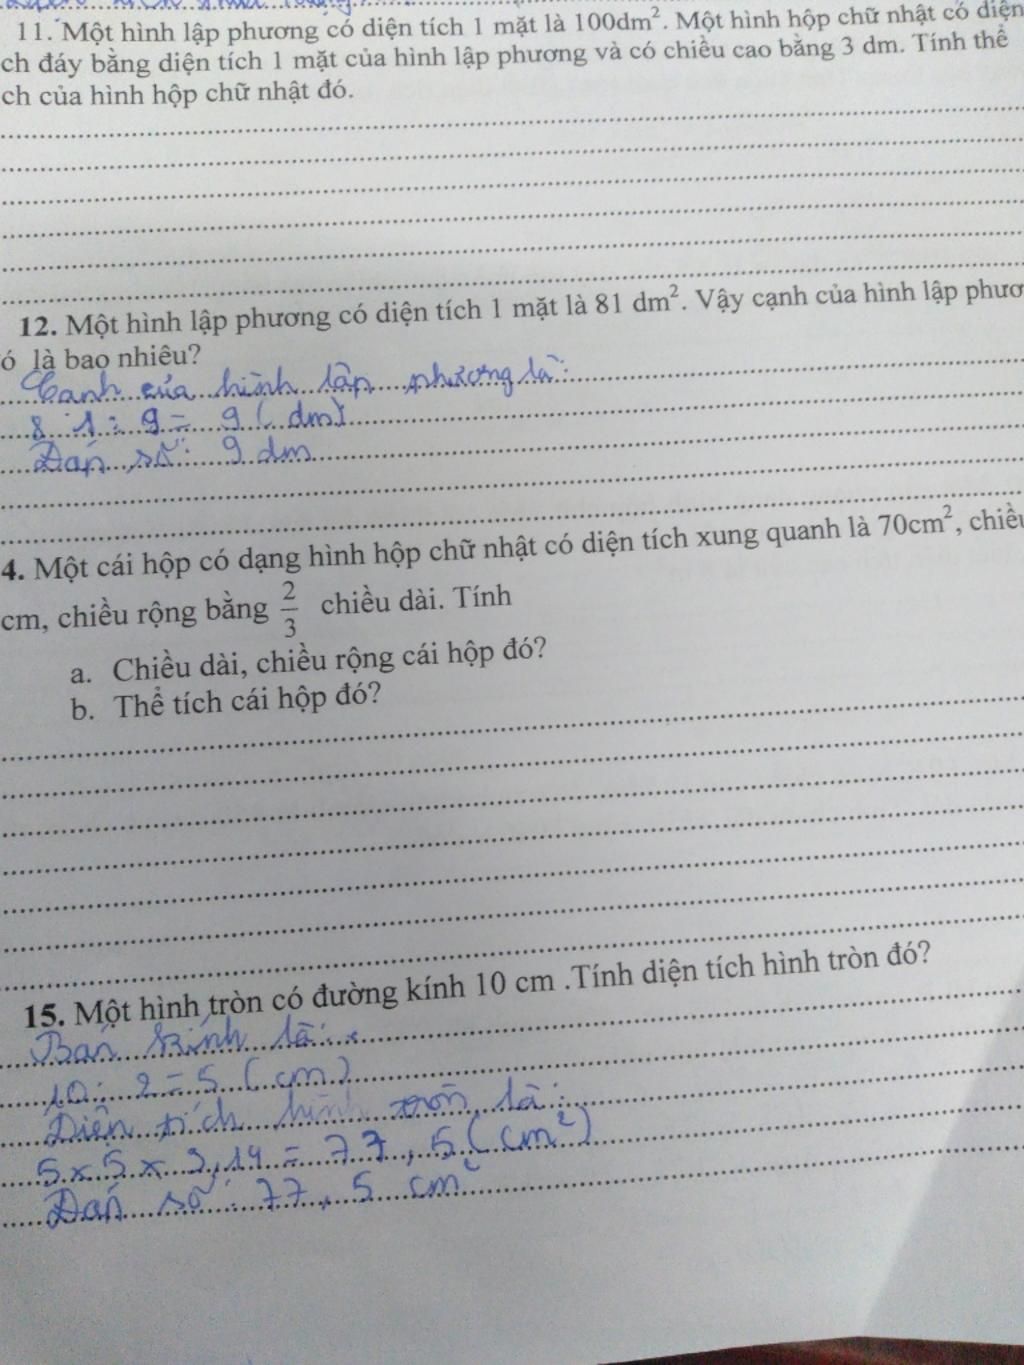 11. Một hình lập phương có diện tích 1 mặt là 100dm². Một hình hộp chữ nhật có diện
ch đáy bằng diện tích 1 mặt của hình lập phương và có chiều cao bằng 3 dm. Tính thể
ch của hình hộp chữ nhật đó.
12. Một hình lập phương có diện tích 1 mặt là 81 dm². Vậy cạnh của hình lập phươ
ó là bao nhiêu?
Canh của hình lập phương là:
81 : 9 = 9 ( dm)
Đáp số: 9 dm
4. Một cái hộp có dạng hình hộp chữ nhật có diện tích xung quanh là 70cm², chiều
cm, chiều rộng bằng 2/3 chiều dài. Tính
a. Chiều dài, chiều rộng cái hộp đó?
b. Thể tích cái hộp đó?
15. Một hình tròn có đường kính 10 cm .Tính diện tích hình tròn đó?
Bán kính là:
10 : 2 = 5 ( cm )
Diện tích hình tròn là:
5 x 5 x 3,14 = 77,5 ( cm²)
Đáp số : 77,5 cm²